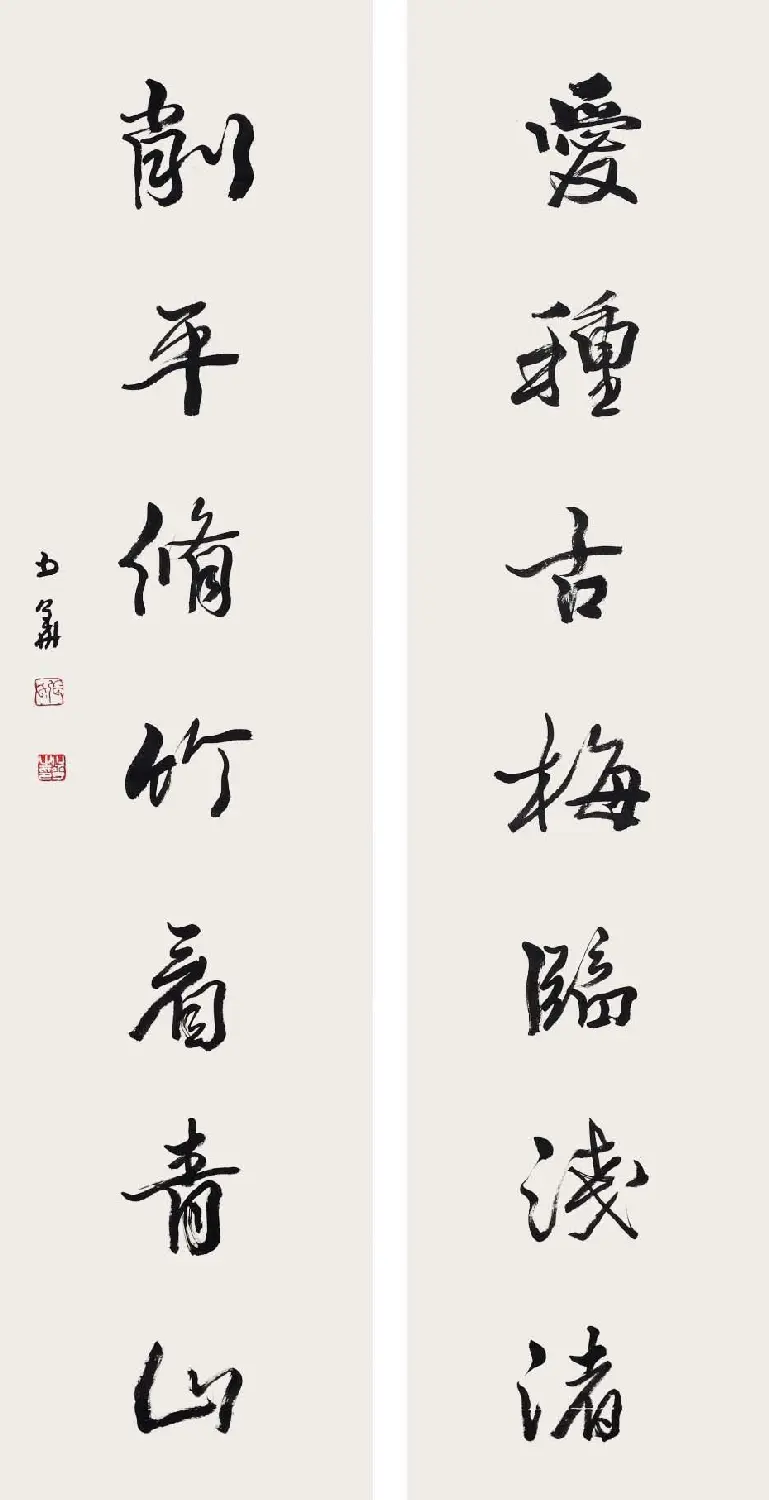 愛種古梅臨淺渚
削平脩竹看青山